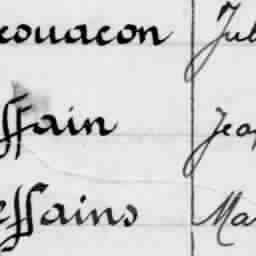 couacon Jul
ffain Jea
effains Ma